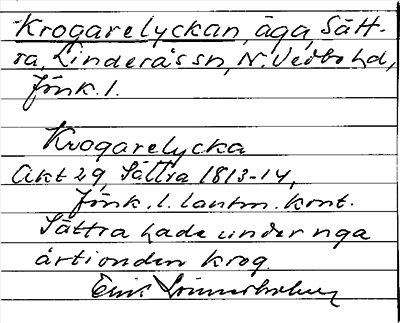 Krogarelyckan, äga, Sätt-
ra, Linderås sn, N. Vedbo hd,
Jönk. l.
Krogarelycka
Akt 29, Sättra 1813-14,
Jönk. l. lantm. kont.
Sättra hade under nga
årtionden krog.
Erik